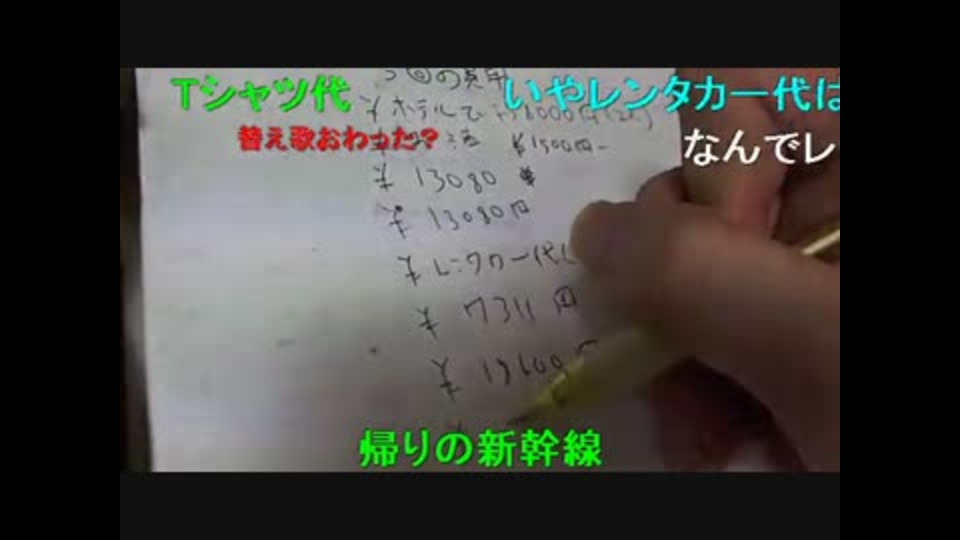 Tシャツ代
いやレンタカー代は
替え歌おわった?
なんでレ
¥1500円
¥ 13080
¥ 13080円
¥ レンタカー代
¥ 7311円
¥ 18600
帰りの新幹線